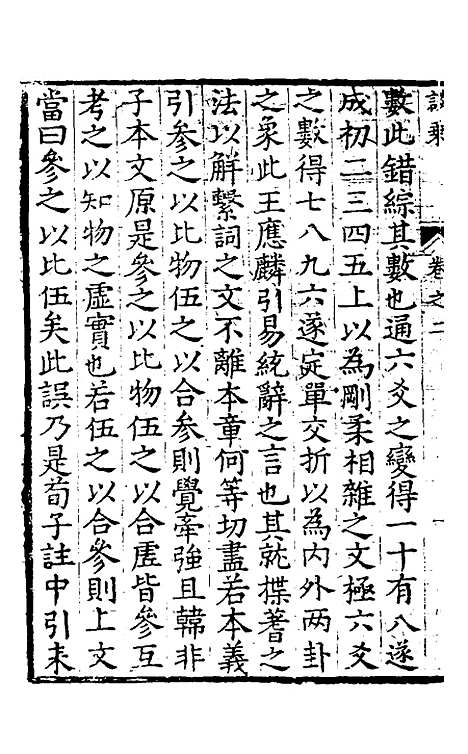 卷之二
數此錯綜其數也通六爻之變得一十有八遂
成初二三四五上以為剛柔相雜之文極六爻
之數得七八九六遂定單交折以為內外兩卦
之象此王應麟引易統辭之言也其就揲蓍之
法以解繫詞之文不離本章何等切盡若本義
引參之以比物伍之以合參則覺牽強且韓非
子本文原是參之以比物伍之以合虛皆參互
考之以知物之虛實也若伍之以合參則上文
當曰參之以比伍矣此誤乃是荀子註中引来